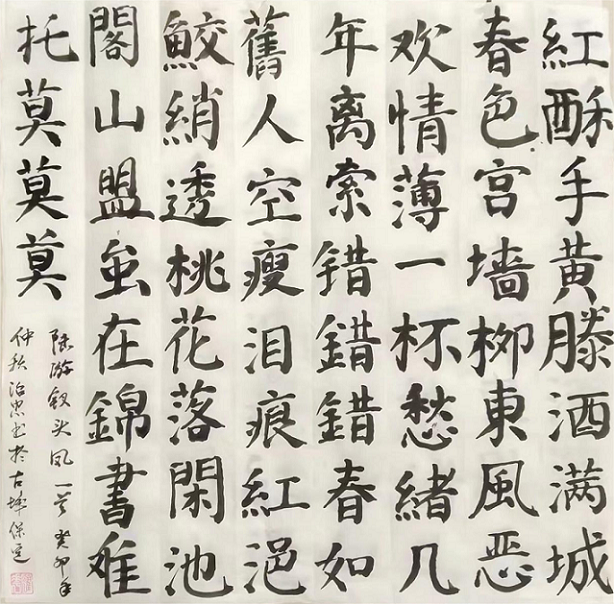 紅酥手黄滕酒满城
春色宫墙柳東風恶
欢情薄一杯愁緒几
年离索錯錯錯春如
舊人空瘦泪痕紅浥
鮫綃透桃花落閑池
閣山盟虽在錦書难
托莫莫莫
陆游釵头凤一首癸卯年
仲秋治忠书於古